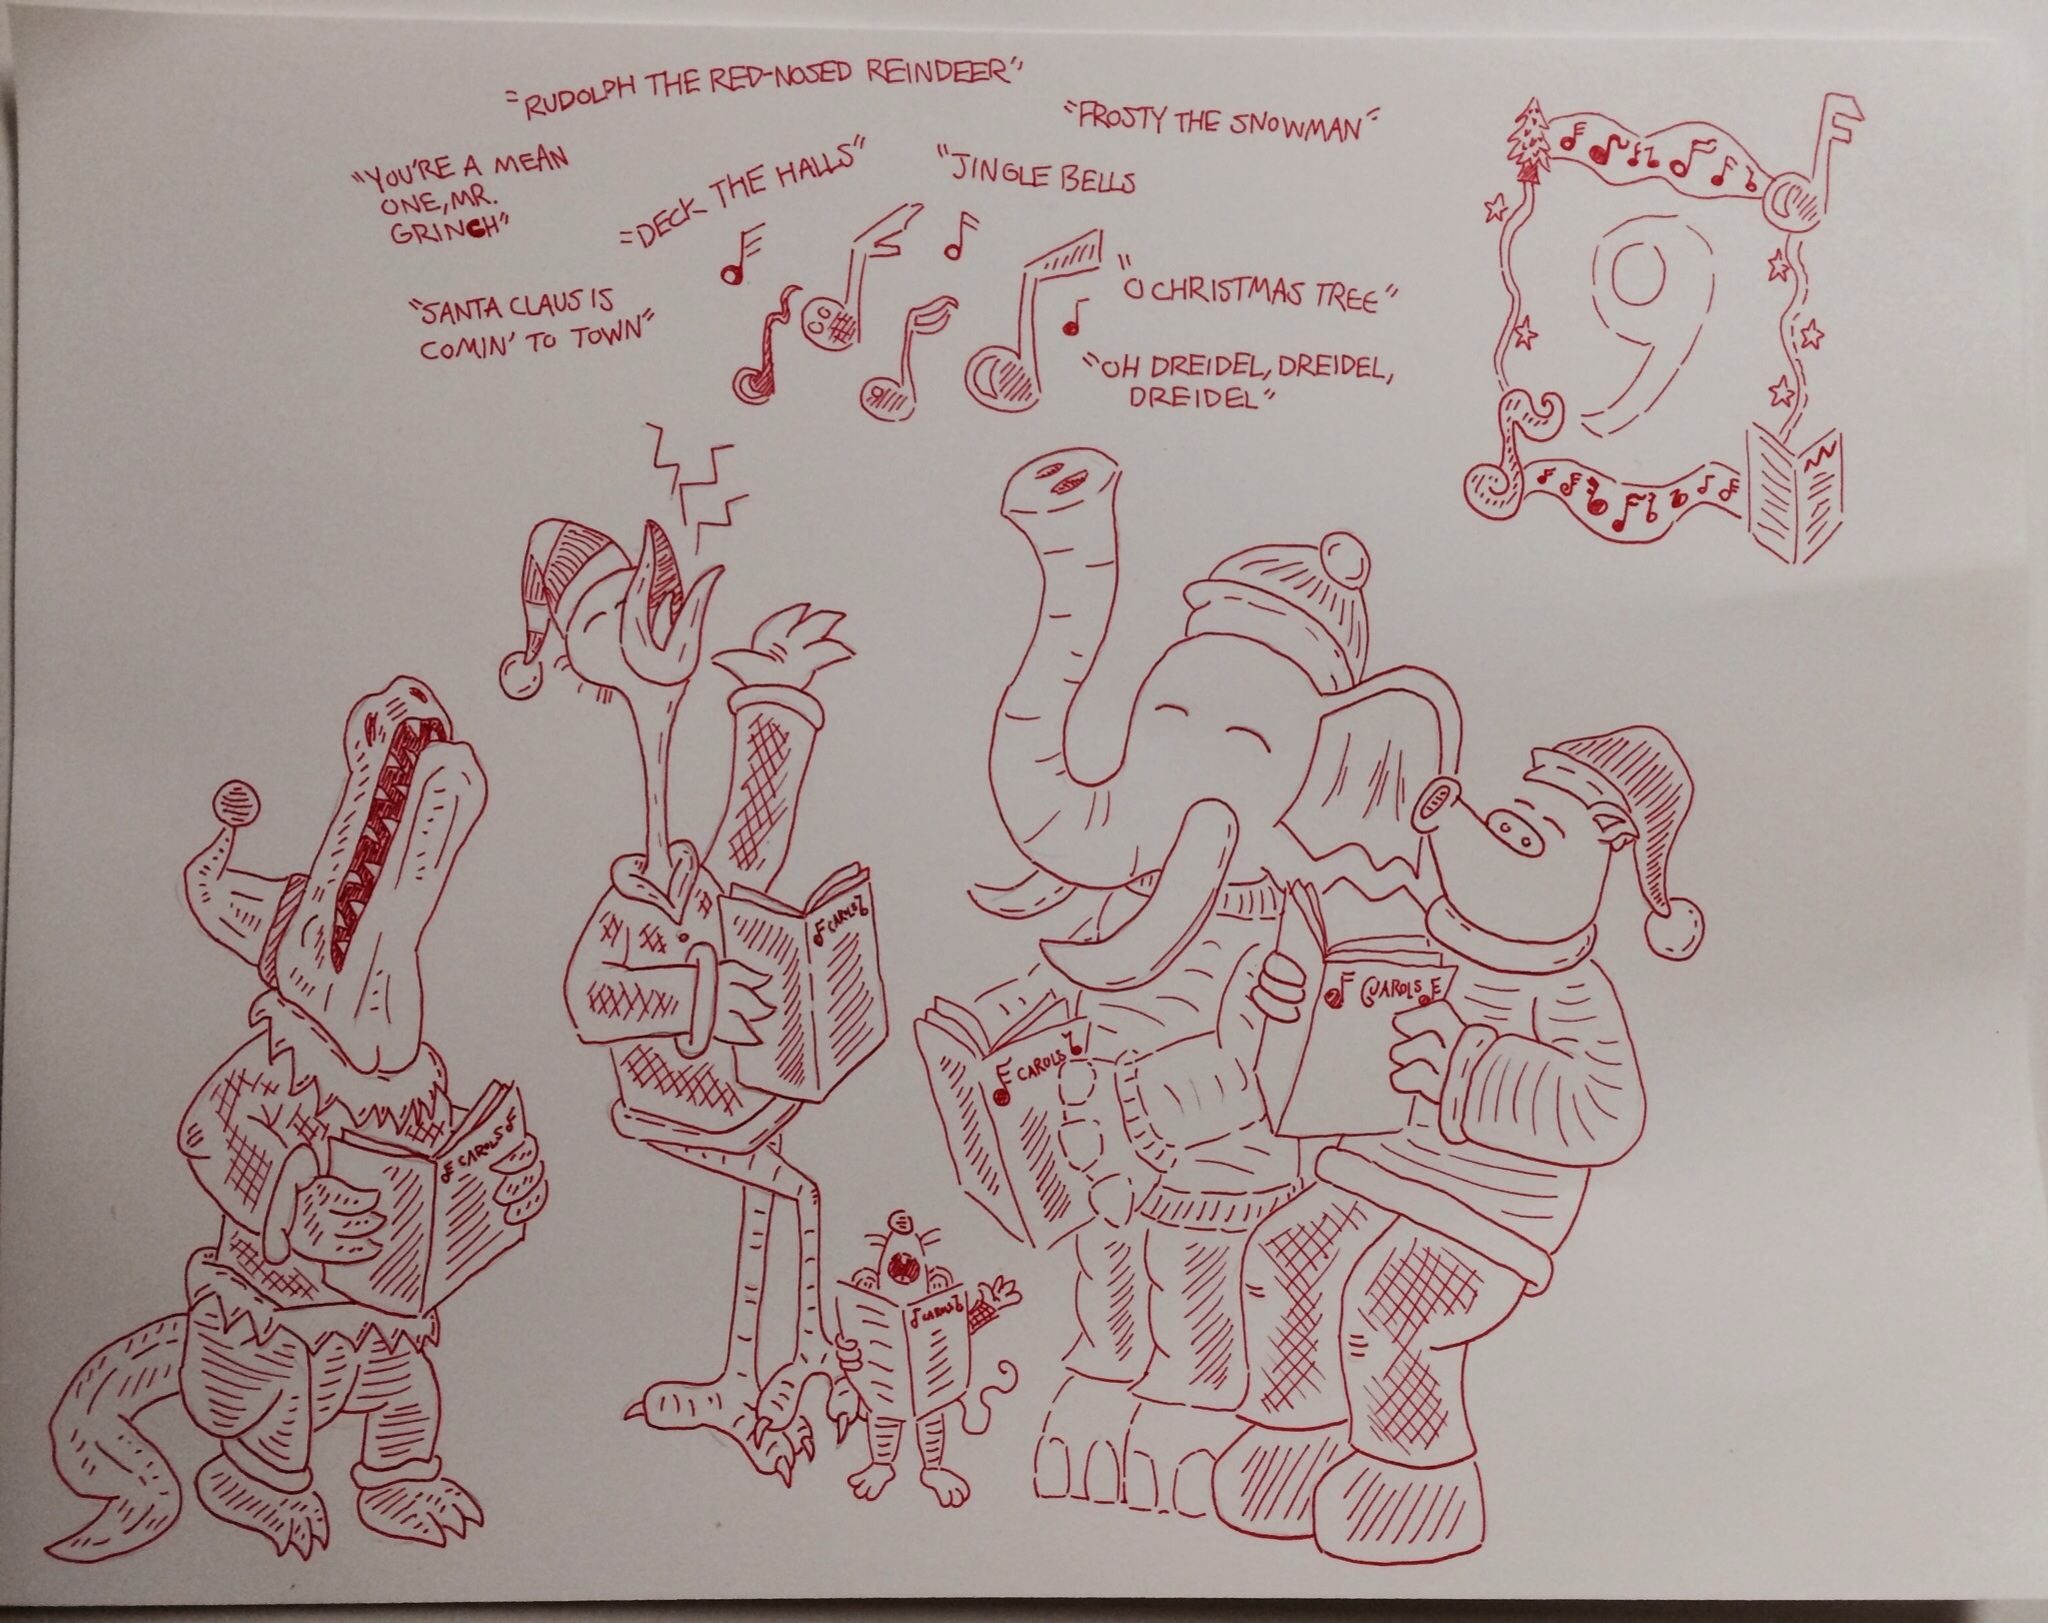 "RUDOLPH THE RED-NOSED REINDEER"
"FROSTY THE SNOWMAN"
"YOU'RE A MEAN
ONE, MR.
GRINCH"
"DECK THE HALLS"
"JINGLE BELLS
"SANTA CLAUS IS
COMIN' TO TOWN"
"O CHRISTMAS TREE"
"OH DREIDEL, DREIDEL,
DREIDEL"
9
CAROLS
CAROLS
CAROLS
CAROLS
CAROLS